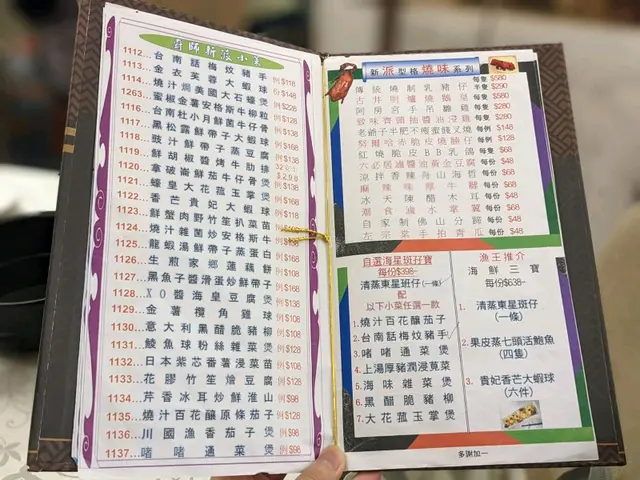 奇師新派小菜
1112…台南話梅炆豬手 例$118
1113…金衣芙蓉大蝦球 份$148
1114…燒汁焗美國大石蠔煲 $228
1263…蜜椒金薯安格斯牛柳粒 例$128
1116…台南杜小月鮮菌牛仔骨
1117…黑松露鮮帶子大蝦球 例$168
1118…豉汁鮮帶子蒸豆腐 例$138
1119…鮮胡椒醬烤牛肋排
1120…拿破崙鮮茄牛仔骨
1121…蠔皇大花菰玉掌煲 例$138
1122…香芒貴妃大蝦球 例$168
1123…鮮蟹肉野竹笙扒菜苗 例$118
1124…燒汁雜菌炒安格斯牛
1125…龍蝦湯鮮帶子蒸蛋白 例$168
1126…生煎家鄉蓮藕餅 例$108
1127…黑魚子醬滑蛋炒鮮帶子 例$168
1128…XO醬海皇豆腐煲 例$138
1129…金薯欖角雞球 例$108
1130…意大利黑醋脆豬柳 例$108
1131…鯪魚球粉絲雜菜煲 例$98
1132…日本紫芯番薯浸菜苗 例$108
1133…花膠竹笙燴豆腐 例$128
1134…芹香冰耳炒鮮淮山 例$98
1135…燒汁百花釀原條茄子 例$128
1136…川國漁香茄子煲 例$98
1137…啫啫通菜煲 例$98
新派型格燒味系列
傳統燒制乳豬仔 每隻$580 半隻$290
古井明爐燒鵝皇 每隻$580
阿房宮手吊脆雞 每隻$280
致味齊頭抽醬油浸雞 每隻$280
老爺子半肥不瘦蜜餞叉燒 每例$128
努爾哈赤脆皮燒腩仔 每例$108
紅燒脆皮BB乳鴿 每隻$68
六必居滷醬油黃金豆腐 每份$48
涼拌香辣舟山海哲 每份$68
麻辣味厚牛𦟌 每份$68
冰天陳醋木耳 每份$48
潮食滷水掌翼 每份$68
自家制佛山分蹄 每份$48
左宗棠手拍青瓜 每份$48
自選海星斑孖寶
每份$398-
清蒸東星班仔(一條)
配
以下小菜任選一款
1.燒汁百花釀茄子
2.台南話梅炆豬手
3.啫啫通菜煲
4.上湯厚豬潤浸莧菜
5.海味雜菜煲
6.黑醋脆豬柳
7.大花菰玉掌煲
漁王推介
海鮮三寶
每份$638-
1.清蒸東星斑仔
(一條)
2.果皮蒸七頭活鮑魚
(四隻)
3.貴妃香芒大蝦球
(六件)
多謝加一